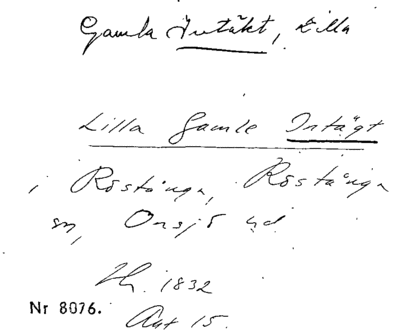 Gamla Intäkt, Lilla
Lilla Gamle Intägt
i Röstånga, Röstånga
sn, Onsjö hd.
1832
Nr 8076.
Akt 15.